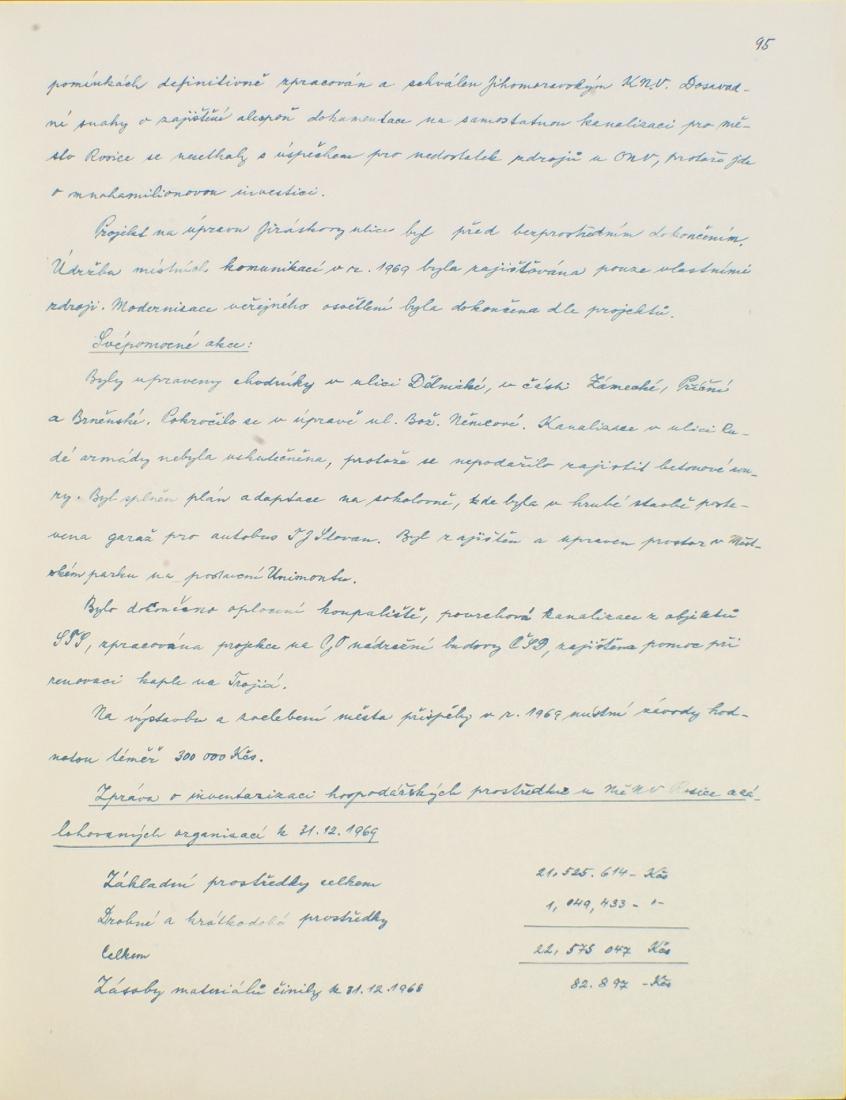 95
pomínkách definitivně zpracován a schválen Jihomoravským KNV. Dosavad-
ní snahy o zajištění alespoň dokumentace na samostatnou kanalizaci pro mě-
sto Rosice se nesetkaly s úspěchem pro nedostatek zdrojů u ONV, protože jde
o mnohamilionovou investici.
Projekt na úpravu Jiráskovy ulice byl před bezprostředním dokončením.
Údržba místních komunikací v r. 1969 byla zajišťována pouze vlastními
zdroji. Modernisace veřejného osvětlení byla dokončena dle projektů.
Svépomocné akce:
Byly upraveny chodníky v ulici Dělnické, v části Zámecké, Příční
a Brněnské. Pokročilo se v úpravě ul. Bož. Němcové. Kanalizace v ulici Ru-
dé armády nebyla uskutečněna, protože se nepodařilo zajistit betonové rou-
ry. Byl splněn plán adaptace na sokolovně, kde byla v hrubé stavbě posta-
vena garaž pro autobus TJ Slovan. Byl zajištěn a upraven prostor v Měst-
ském parku na postavení Unimontu.
Bylo dokončeno oplocení koupaliště, povrchová kanalizace z objektů
SPS, zpracována projekce na GO nádražní budovy ČSD, zajištěna pomoc při
renovaci kaple na Trojici.
Na výstavbu a zvelebení města přispěly v r. 1969 místní závody hod-
notou téměř 300 000 Kčs.
Zpráva o inventarizaci hospodářských prostředků u MěNV Rosice a zá-
lohovaných organisací k 31.12.1969
Základní prostředky celkem 21,525.614 - Kčs
Drobné a krátkodobé prostředky 1,049,433 - "-
Celkem 22,575 047 Kčs
Zásoby materiálů činily k 31.12.1968 82.897 - Kčs